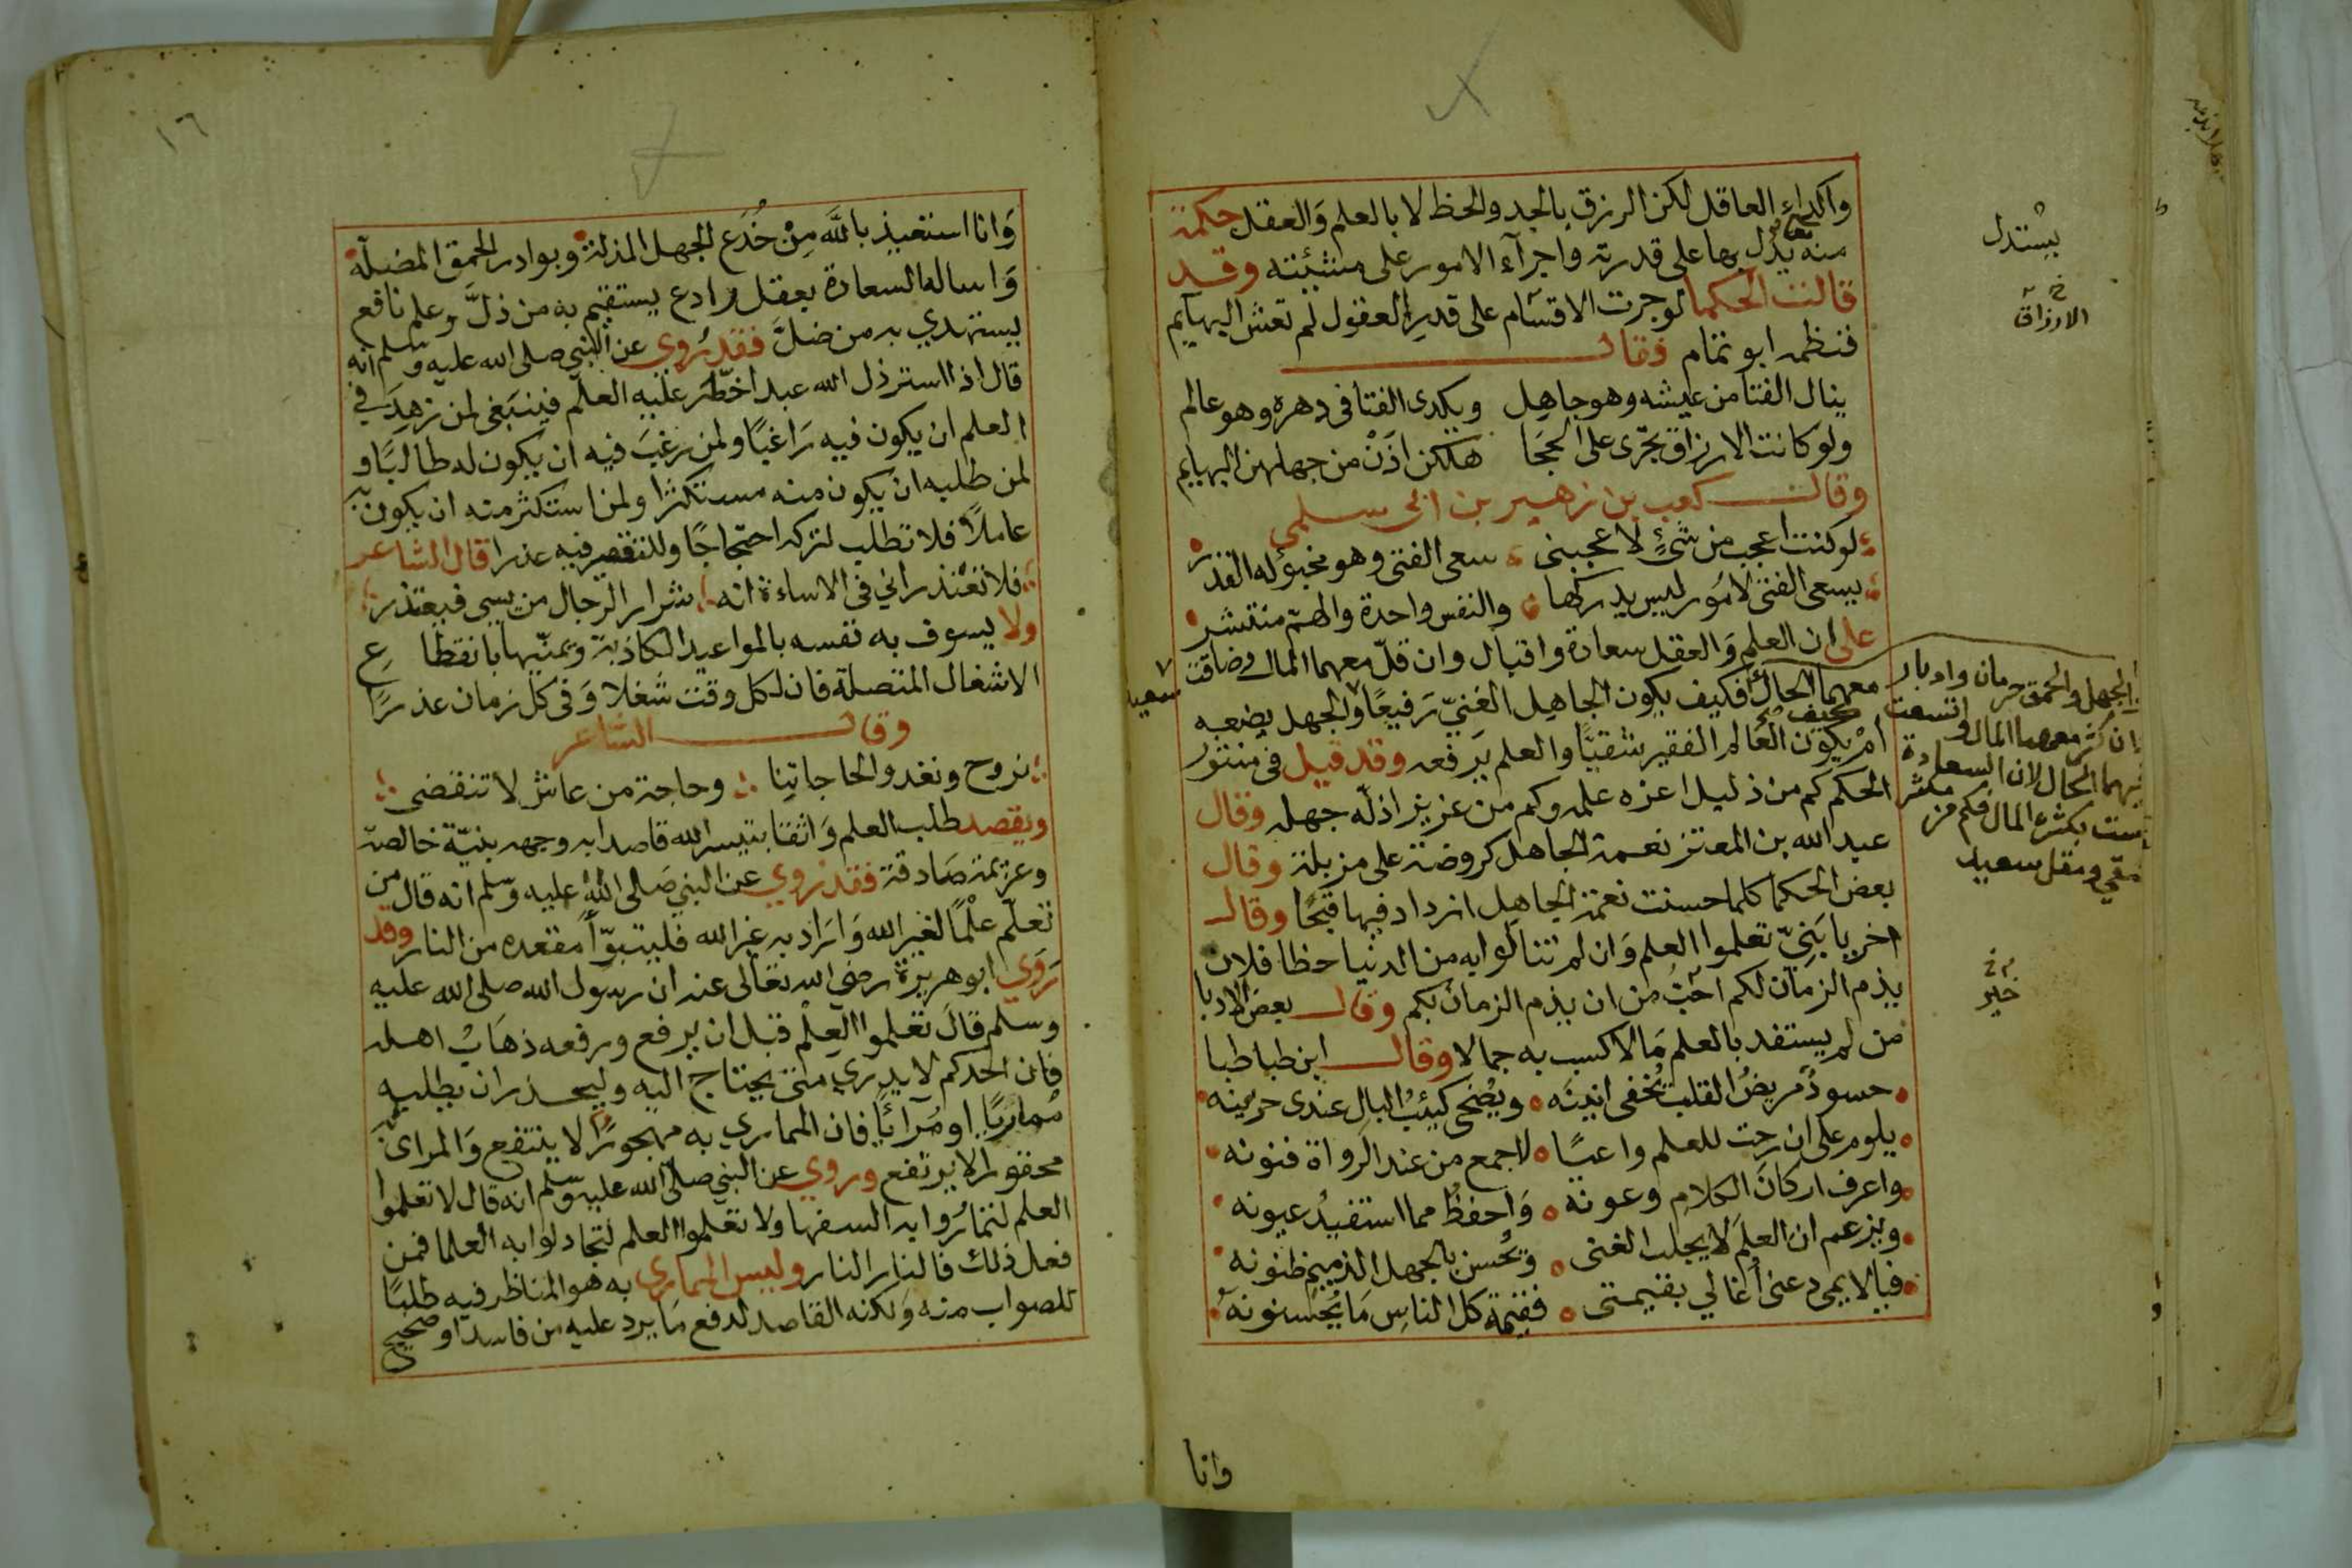 واكداء العاقل لكن الرزق بالجد والحظ لا بالعلم والعقل حكمة
منه تعالى يدل بها على قدرته واجرآء الامور على مشئيته وقد
قالت الحكما لو جرت الاقسام على قدر العقول لم تعش البهايم
فنظمه ابو تمام فقال
ينال الفتا من عيشه وهو جاهل ويكدى الفتا فى دهره وهو عالم
ولو كانت الارزاق تجرى على الحجا هلكن اذن من جهلهن البهايم
وقال كعب بن زهير بن ابى سلمى
لو كنت اعجب من شئ لاعجبنى سعى الفتى وهو مخبؤ له القدر
يسعى الفتى لامور ليس يدركها والنفس واحدة والهم منتشر
على ان العلم والعقل سعادة واقبال وان قل معهما المال وضاقت
معهما الحال فكيف يكون الجاهل الغني رفيعا والجهل يضعه
ام يكون العالم الفقير شقيا والعلم يرفعه وقد قيل فى منثور
الحكم كم من ذليل اعزه علمه وكم من عزيز اذله جهله وقال
عبد الله بن المعتز نعمة الجاهل كروضة على مزبلة وقال
بعض الحكما كلما حسنت نعمة الجاهل ازداد فيها قبحا وقال
اخر يا بني تعلموا العلم وان لم تنالوا به من الدنيا حظا فلان
يذم الزمان لكم احب من ان يذم الزمان بكم وقال بعض الادبا
من لم يستفد بالعلم مالا اكسب به جمالا وقال ابن طباطبا
حسود مريض القلب يخفى انينه ويضحى كئيب البال عندى حزينه
يلوم على ان رحت للعلم واعيا لاجمع من عند الرواة فنونه
واعرف اركان الكلام وعونه واحفظ مما استفيد عيونه
ويزعم ان العلم لا يجلب الغنى ويحسن بالجهل الذميم ظنونه
فيا لايمى دعنى اغالي بقيمتى فقيمة كل الناس ما يحسنونه
وانا
يستدل
الارزاق
الجهل والحمق حرمان وادبار
ان كثر معهما المال واتسعت
فيهما الحال لان السعادة
ليست بكثرة المال فكم من مكثر
شقي ومقل سعيد
خير
سعيد
١٦
وانا استعيذ بالله من خدع الجهل المذلة وبوادر الحمق المضلة
واساله السعادة بعقل رادع يستقيم به من ذل وعلم نافع
يستهدي به من ضل فقد روي عن النبي صلى الله عليه وسلم انه
قال اذا استرذل الله عبدا خطر عليه العلم فينبغى لمن زهد في
العلم ان يكون فيه راغبا ولمن رغب فيه ان يكون له طالبا و
لمن طلبه ان يكون منه مستكثرا ولمن استكثر منه ان يكون به
عاملا فلا تطلب لتركه احتجاجا وللتقصير فيه عذرا قال الشاعر
فلا تعتذراني فى الاساءة انه شرار الرجال من يسى فيعتذر
ولا يسوف به نفسه بالمواعيد الكاذبة ويمنيها بانقطاع
الاشغال المتصلة فان لكل وقت شغلا وفى كل زمان عذرا
وقال الشاعر
نروح ونغدو الحاجاتنا وحاجة من عاش لا تنقضى
ويقصد طلب العلم واثقا بتيسر الله قاصدا به وجهه بنية خالصة
وعزيمة صادقة فقد روي عن النبي صلى الله عليه وسلم انه قال من
تعلم علما لغير الله واراد به غير الله فليتبوأ مقعده من النار وقد
روي ابو هريرة رضى الله تعالى عنه ان رسول الله صلى الله عليه
وسلم قال تعلموا العلم قبل ان يرفع ورفعه ذهاب اهله
فان احدكم لا يدري متى يحتاج اليه وليحذر ان يطلبه
مماريا او مرائيا فان الممارى به مهجورا لا ينتفع والمرائ به
محقورا لا يرتفع وروي عن النبي صلى الله عليه وسلم انه قال لا تعلموا
العلم لتماروا به السفها ولا تعلموا العلم لتجادلوا به العلما فمن
فعل ذلك فالنار النار وليس الممارى به هو المناظر فيه طلبا
للصواب منه ولكنه القاصد لدفع ما يرد عليه من فاسد او صحيح